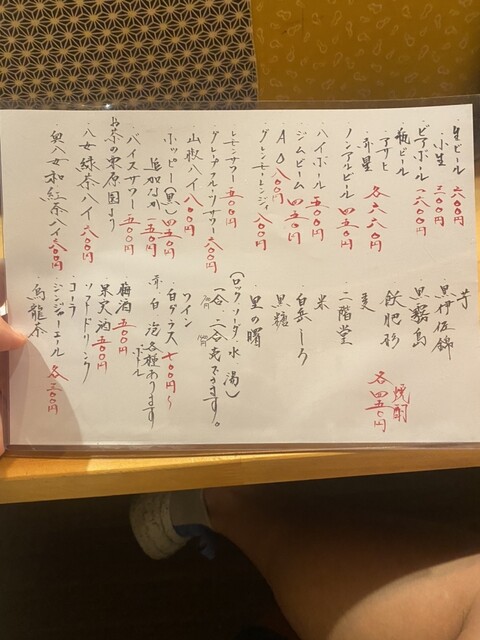 生ビール 六〇〇円
小生 三〇〇円
ビアボール 一六〇〇円
瓶ビール
アサヒ
赤星 各六八〇円
ノンアルビール 四五〇円
ハイボール 五〇〇円
ジムビーム 四五〇円
AO 八〇〇円
グレンモーレンジィ 八〇〇円
レモンサワー 五〇〇円
グレープフルーツサワー 六〇〇円
山椒ハイ 八〇〇円
ホッピー(黒) 四五〇円
追加なか 一五〇円
バイスサワー 五〇〇円
お茶の栗原園より
八女緑茶ハイ 六〇〇円
奥八女和紅茶ハイ 六〇〇円
焼酎
各四五〇円
芋
黒伊佐錦
黒霧島
飫肥杉
麦
二階堂
米
白岳しろ
黒糖
里の曙
(ロック・ソーダ・水・湯)
一合、二合売できます。
ワイン
白グラス 七〇〇円〜
赤、白、泡各種あります
ボトル
梅酒 五〇〇円
果実酒 五〇〇円
ソフトドリンク
コーラ
ジンジャーエール 各三〇〇円
烏龍茶